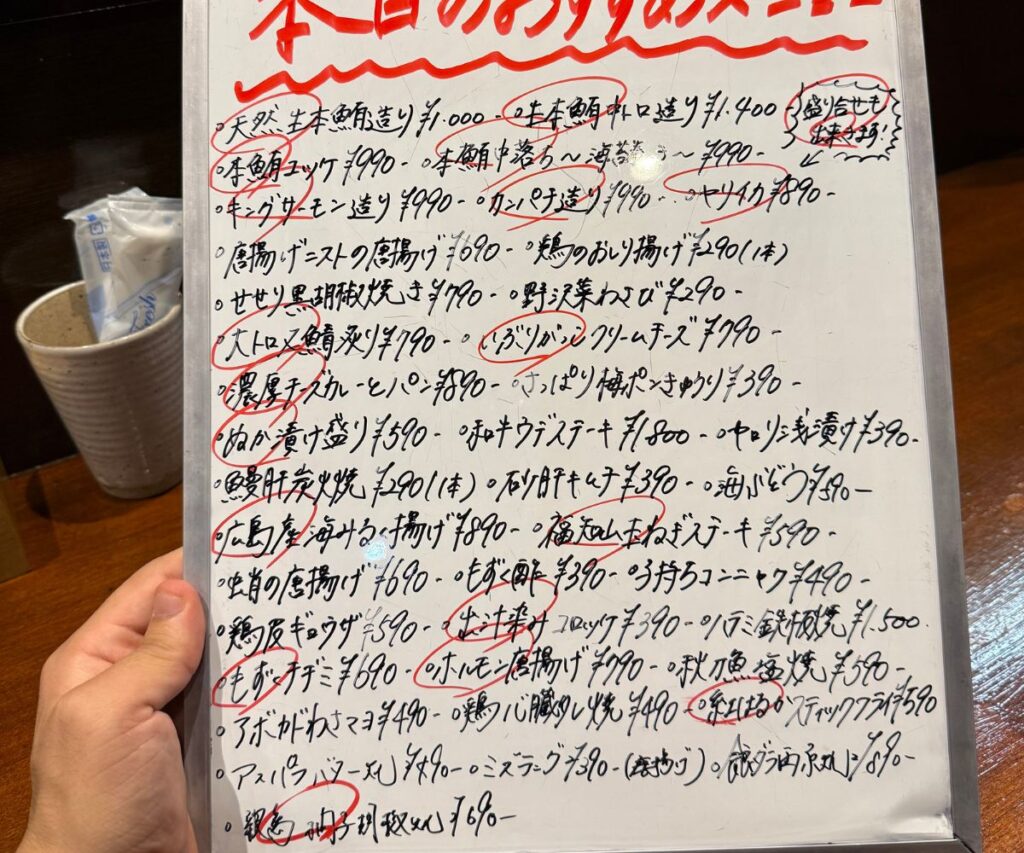 本日のおすすめメニュー
◦天然生本鮪造り ¥1.000- ◦生本鮪中トロ造り ¥1.400- 盛り合せも
出来ます!
◦本鮪ユッケ ¥990- ◦本鮪中落ち〜海苔 〜 ¥990-
◦キングサーモン造り ¥990- ◦カンパチ造り ¥990- ◦ヤリイカ ¥890-
◦唐揚げニストの唐揚げ ¥690- ◦鶏のおしり揚げ ¥290(1本)
◦せせり黒胡椒焼き ¥790- ◦野沢菜わさび ¥290-
◦大トロ〆鯖炙り ¥790- ◦いぶりがっこクリームチーズ ¥790-
◦濃厚チーズカレーとパン ¥890- ◦さっぱり梅ポンきゅうり ¥390-
◦ぬか漬け盛り ¥590- ◦和牛ウデステーキ ¥1.800- ◦ヤロリ浅漬け ¥390-
◦鰻肝炭火焼 ¥290(1本) ◦砂肝キムチ ¥390- ◦海ぶどう ¥590-
◦広島産海みるく揚げ ¥890- ◦福知山玉ねぎステーキ ¥590-
◦の唐揚げ ¥690- ◦もずく酢 ¥390- ◦子持ちコンニャク ¥490-
◦鶏皮ギョウザ ¥590- ◦出汁染みコロッケ ¥390- ◦ハラミ鉄板焼 ¥1.500.
◦もずくチヂミ ¥690- ◦ホルモン唐揚げ ¥790- ◦秋刀魚塩焼 ¥590-
◦アボカドわさマヨ ¥490- ◦鶏心臓炙り焼 ¥490- ◦紅はるかスティックフライ ¥590
◦アスパラバター ¥490- ◦ミズダコ ¥390-(唐揚げ) ◦銀ダラ西京 ¥890-
◦親鳥柚子胡椒 ¥690-